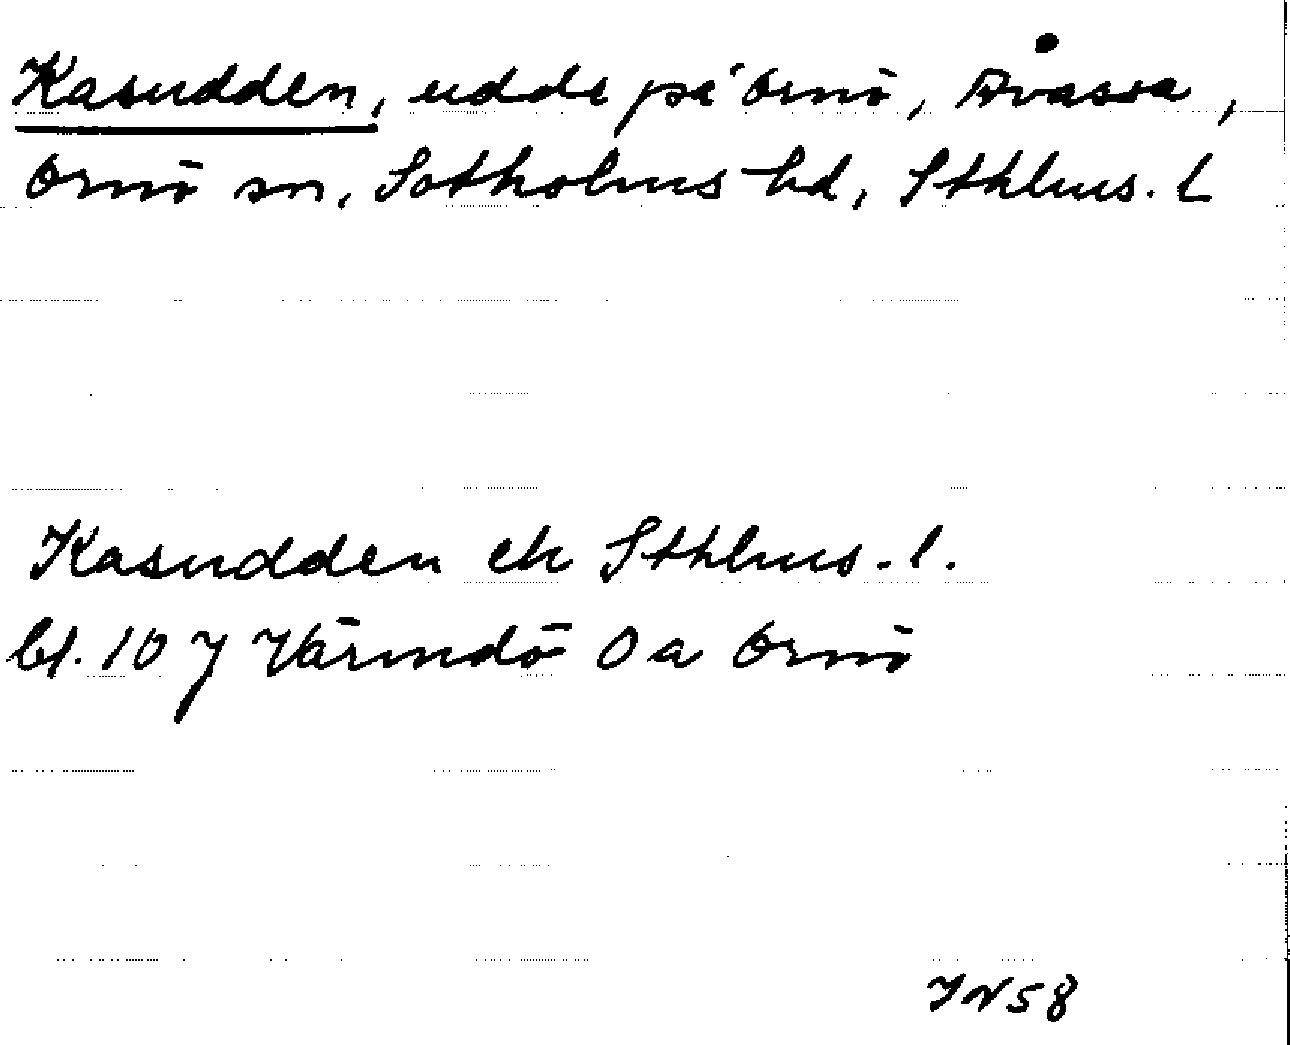 Kasudden, udde på Ornö, Åvassa,
Ornö sn, Sotholms hd, Sthlms. l
Kasudden ek Sthlms. l.
bl. 10 J Värmdö Oa Ornö
IN 58